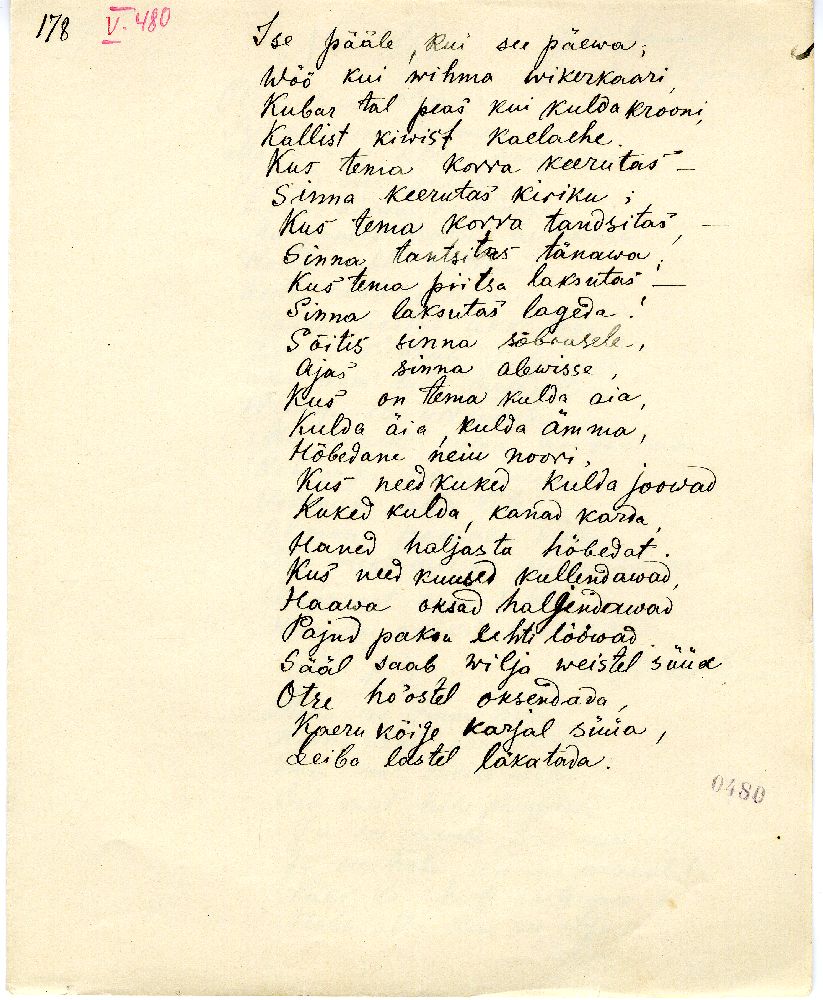 178 V. 480
Ise pääle, kui see päewa;
Wöö kui wihma wikerkaari,
Kubar tal peas kui kulda krooni,
Kallist kiwist kaelaehe.
Kus tema korra keerutas –
Sinna keerutas kiriku;
Kus tema korra tandsitas, –
Sinna tantsitas tänawa;
Kus tema piitsa laksutas –
Sinna laksutas lageda!
Sõitis sinna sõbrusele,
Ajas sinna alewisse,
Kus on tema kulda aia,
Kulda äia, kulda ämma,
Hõbedane neiu noori,
Kus need kuked kulda joowad
Kuked kulda, kanad karda,
Haned haljasta hõbedat.
Kus need kuused kullendawad,
Haawa oksad haljendawad
Pajud paksu lehti lööwad
Sääl saab wilja weistel süüa
Otre hoostel oksendada,
Kaeru kõige karjal süüa,
Leiba lastel läkatada.
0480